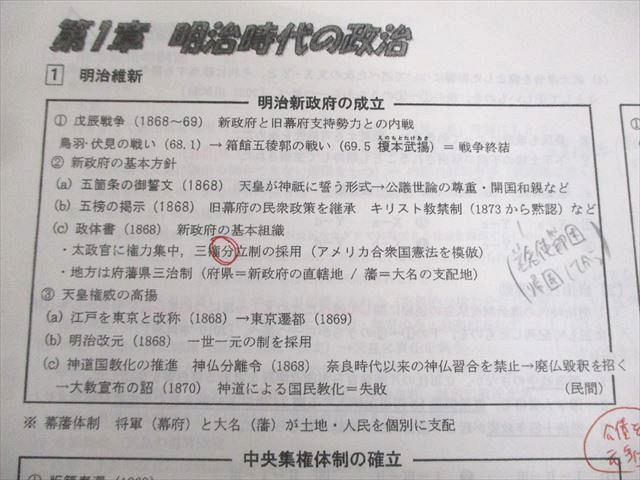 第1章 明治時代の政治
1 明治維新
明治新政府の成立
① 戊辰戦争（1868～69） 新政府と旧幕府支持勢力との内戦
えのもとたけあき
鳥羽・伏見の戦い（68.1）→ 箱館五稜郭の戦い（69.5 榎本武揚）＝戦争終結
② 新政府の基本方針
(a) 五箇条の御誓文（1868） 天皇が神祇に誓う形式→公議世論の尊重・開国和親など
(b) 五榜の掲示（1868） 旧幕府の民衆政策を継承 キリスト教禁制（1873から黙認）など
(c) 政体書（1868） 新政府の基本組織
・太政官に権力集中，三権分立制の採用（アメリカ合衆国憲法を模倣）
・地方は府藩県三治制（府県＝新政府の直轄地 / 藩＝大名の支配地）
③ 天皇権威の高揚
(a) 江戸を東京と改称（1868）→東京遷都（1869）
(b) 明治改元（1868） 一世一元の制を採用
(c) 神道国教化の推進 神仏分離令（1868） 奈良時代以来の神仏習合を禁止→廃仏毀釈を招く
→大教宣布の詔（1870） 神道による国民教化＝失敗 （民間）
※ 幕藩体制 将軍（幕府）と大名（藩）が土地・人民を個別に支配
中央集権体制の確立